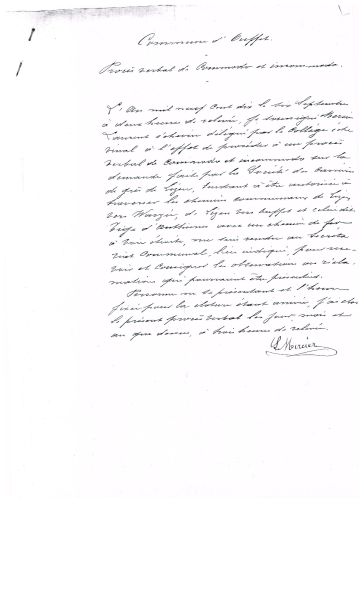 Commune d'Ouffet.
Procès verbal de Commodo et incommodo.
L'an mil neuf cent dix le six Septembre
à deux heures de relevée, je soussigné Mercier
Laurent échevin délégué par le Collège éche-
vinal à l'effet de procéder à un procès
verbal de Commodo et incommodo sur la
demande faite par la Société des Carrières
de grès de Liyen, tendant à être autorisée à
traverser les chemins communaux de
vers Warzée, de vers Ouffet et celui dit
d'Anthisnes avec un chemin de fer
à voie étroite, me suis rendu au Secréta-
riat Communal, lieu indiqué, pour rece-
voir et consigner les observations ou récla-
mations qui pourraient être présentées.
Personne ne se présentant et l'heure
fixée pour la clôture étant arrivée, j'ai clos
le présent procès verbal les jour, mois et
an que dessus, à trois heures de relevée.
L Mercier